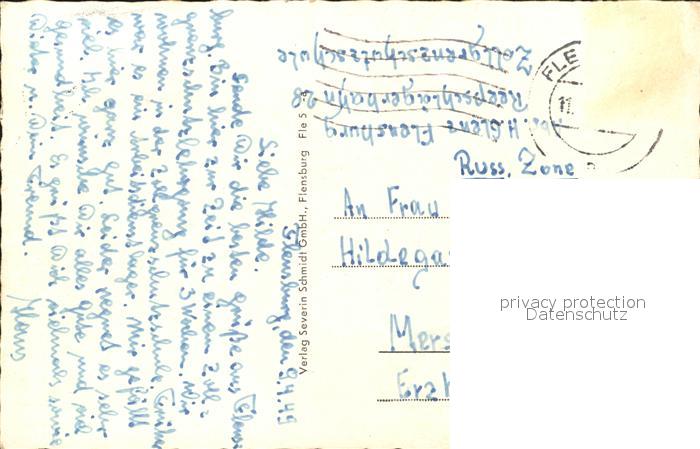 Flensburg, den 9.4.49
Liebe Hilde.
Sende Dir die besten Grüße aus Flens-
burg. Bin hier zur Zeit zu einem Zoll-
grenzschutzlehrgang für 3 Wochen. Wir
wohnen in der Zollgrenzschutzschule. Früher
war es ein Arbeitsdienstlager. Mir gefällt
es hier ganz gut. Leider regnet es sehr
viel. Ich wünsche Dir alles gute und viel
Gesundheit. Es grüßt Dich vielmals sowie
Dieter u. Dein Freund.
Hans
Verlag Severin Schmidt GmbH., Flensburg Fle 5
Abs. H. Glenz Flensburg
Reepschlägerbahn 28
Zollgrenzschutzschule
FLE
11.
Russ. Zone
An Frau
Hildega
Mers
Erz
privacy protection
Datenschutz